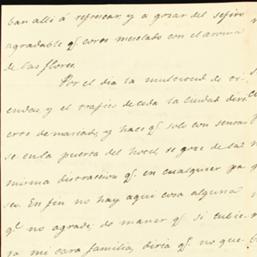 ban alli á refrescar, y a gozar del
agradable q. corre mezclado con el aroma
de las flores.
Por el dia la multitud de vi
endas y el trafico de toda la ciudad
eros de mariado, y hace q. solo con sentar
se en la puerta del hotel se goze de la
misma distraccion q. en cualquier pa
seo. En fin no hay aqui cosa alguna
q. no agrade; de maner q. si tubie
ra mi cara familia, diria q. no que